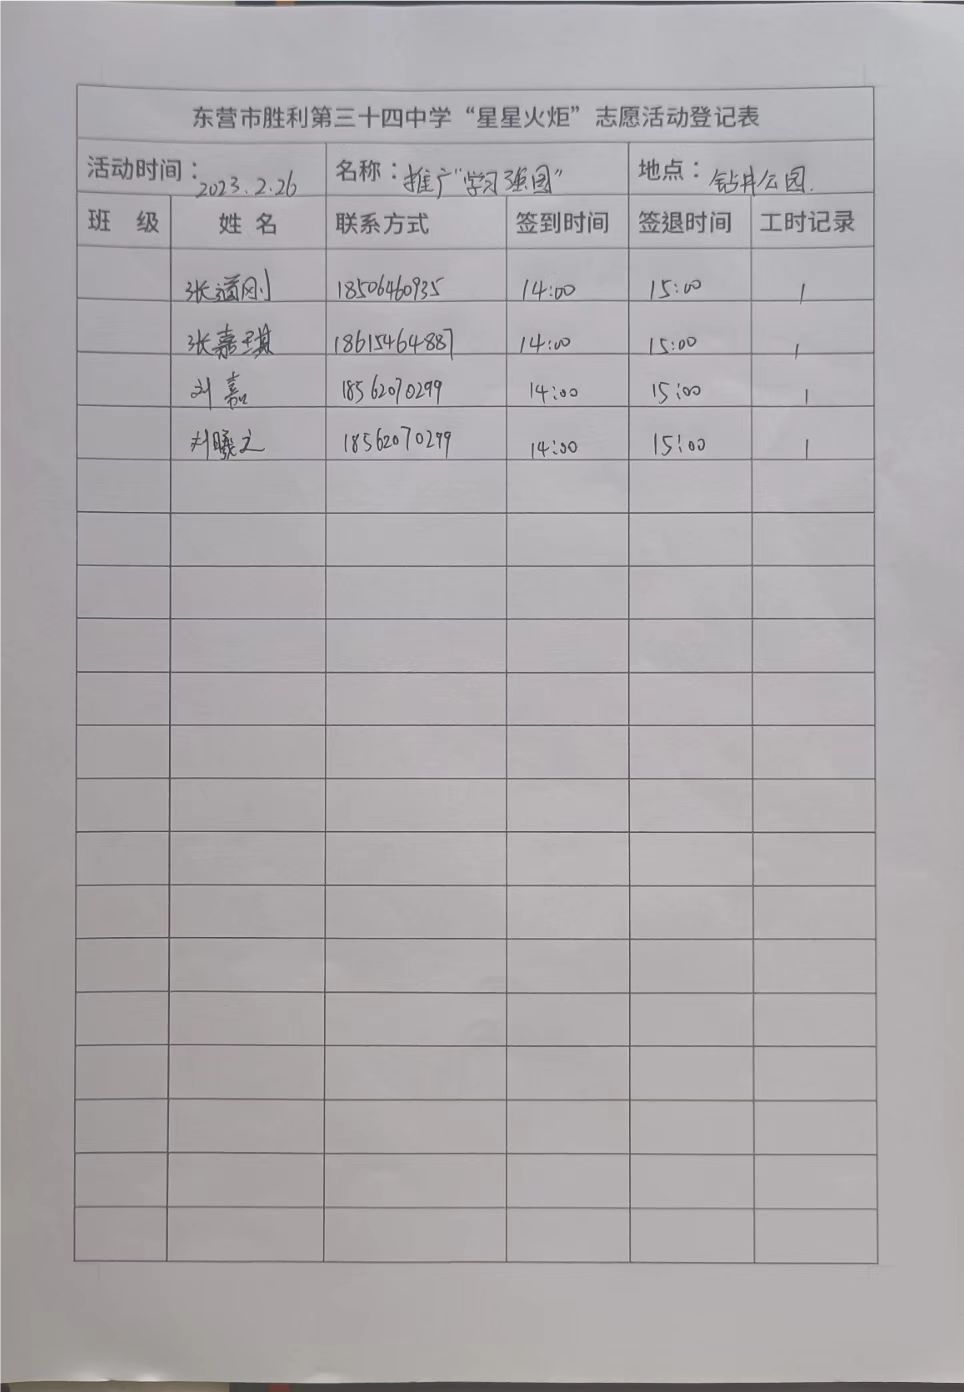 东营市胜利第三十四中学“星星火炬”志愿活动登记表
活动时间：2023.2.26 名称：推广“学习强国” 地点：钻井公园.
班 级 姓 名 联系方式 签到时间 签退时间 工时记录
张道刚 18506460935 14:00 15:00 1
张嘉琪 18615464887 14:00 15:00 1
刘嘉 18562070299 14:00 15:00 1
刘曦之 18562070299 14:00 15:00 1